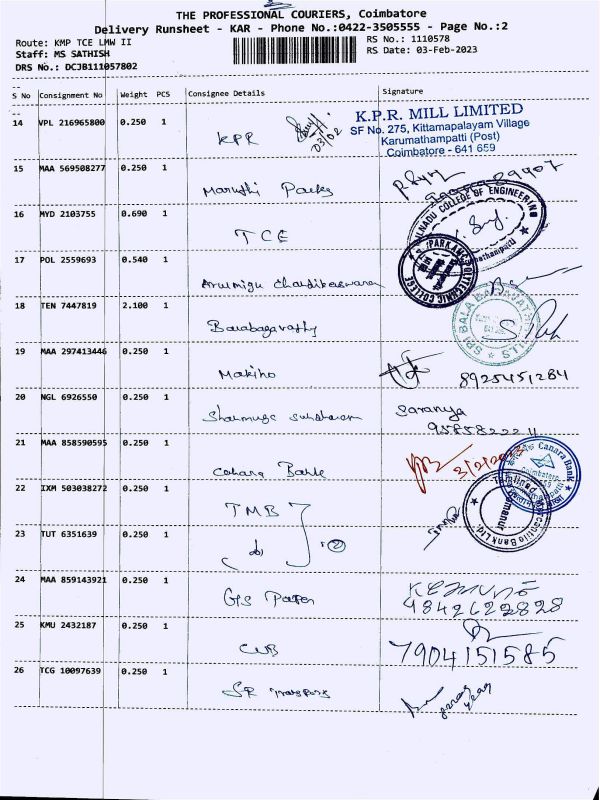 THE PROFESSIONAL COURIERS, Coimbatore
Delivery Runsheet - KAR - Phone No.:0422-3505555 - Page No.:2
Route: KMP TCE LMW II
RS No.: 1110578
Staff: MS SATHISH
RS Date: 03-Feb-2023
DRS No.: DCJB111057802
S No Consignment No Weight PCS Consignee Details Signature
14 VPL 216965800 0.250 1 KPR 03/02
K.P.R. MILL LIMITED
SF No. 275, Kittamapalayam Village
Karumathampatti (Post)
Coimbatore - 641 659
15 MAA 569508277 0.250 1 Maruthi Packs
16 MYD 2103755 0.690 1 TCE
COLLEGE OF ENGINEERING
17 POL 2559693 0.540 1 Arulmigu Chandikeswarar
POLYTECHNIC COLLEGE
18 TEN 7447819 2.100 1 Balabagavathy
SRI BALA BAGAVATHI MILLS
19 MAA 297413446 0.250 1 Makino 8925451284
20 NGL 6926550 0.250 1 Saranya
21 MAA 858590595 0.250 1 Canara Bank 3/2/2023
Canara Bank
22 IXM 503038272 0.250 1 TMB
Mercantile Bank Ltd.
23 TUT 6351639 0.250 1 do 2
24 MAA 859143921 0.250 1 GS
9842622828
25 KMU 2432187 0.250 1 CUB 7904151585
26 TCG 10097639 0.250 1 SR Transport